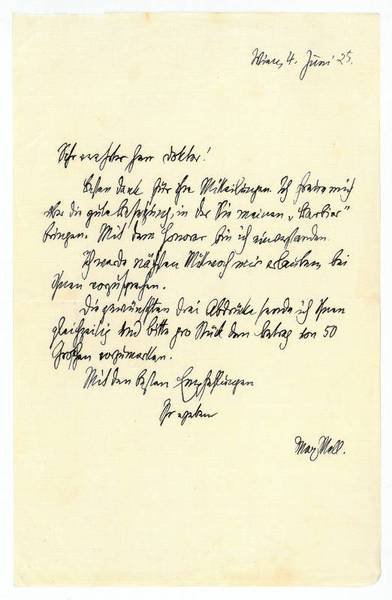 Wien, 4. Juni 25.
Sehr verehrter Herr Doktor!
Besten Dank für Ihre Mitteilungen. Ich freue mich
über die gute Besetzung, in der Sie meinen „Barbier“
bringen. Mit dem Honorar bin ich einverstanden.
Ich werde nächsten Mittwoch mir erlauben bei
Ihnen vorzusprechen.
Die gewünschten drei Abdrücke sende ich Ihnen
gleichzeitig und bitte pro Stück den Betrag von 50
Groschen vorzumerken.
Mit den besten Empfehlungen
Ihr ergebener
Max Mell.